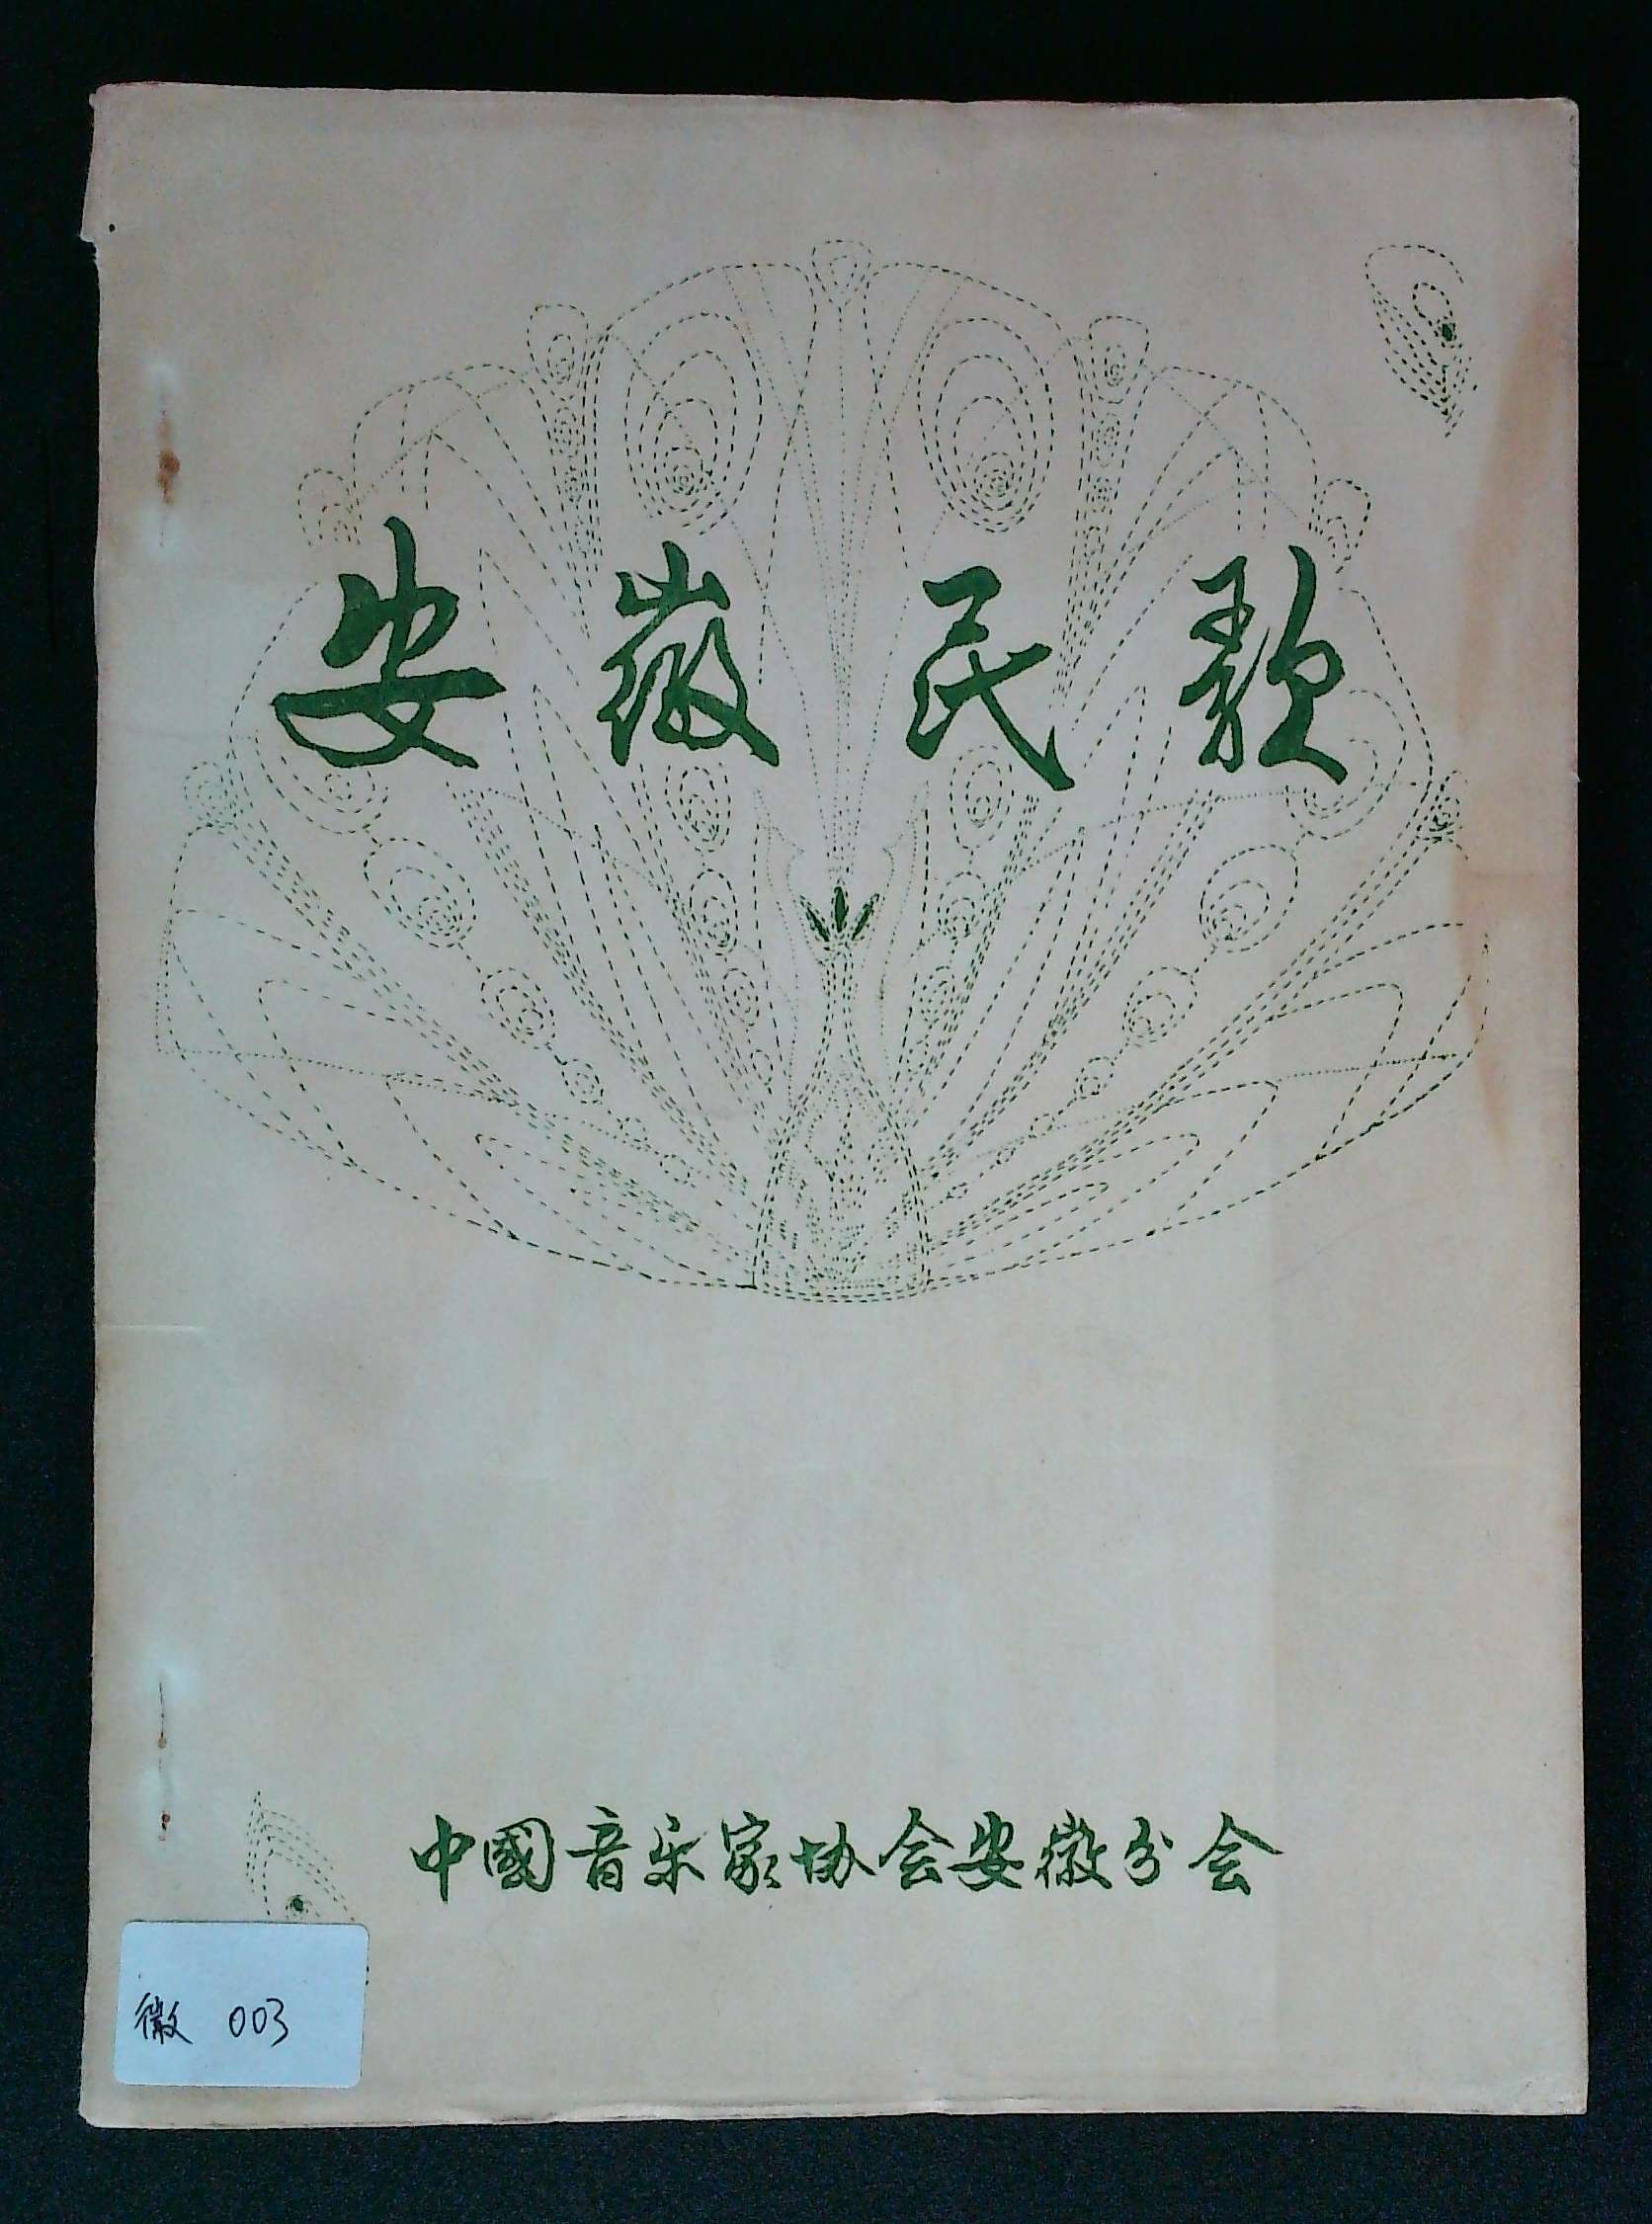 安徽民歌
中國音乐家协会安徽分会
徽 003